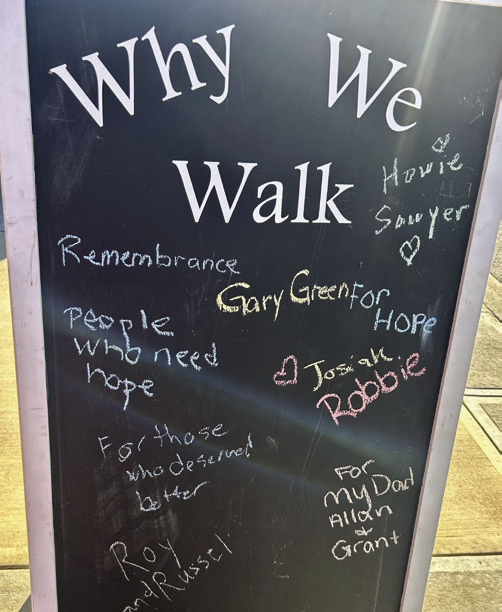 Why We
Walk
Howie
Sawyer
Remembrance
Gary Green
For
HOPE
People
who need
hope
Josiah
Robbie
For those
who deserved
better
For
My Dad
Allan
&
Grant
Roy
and Russel